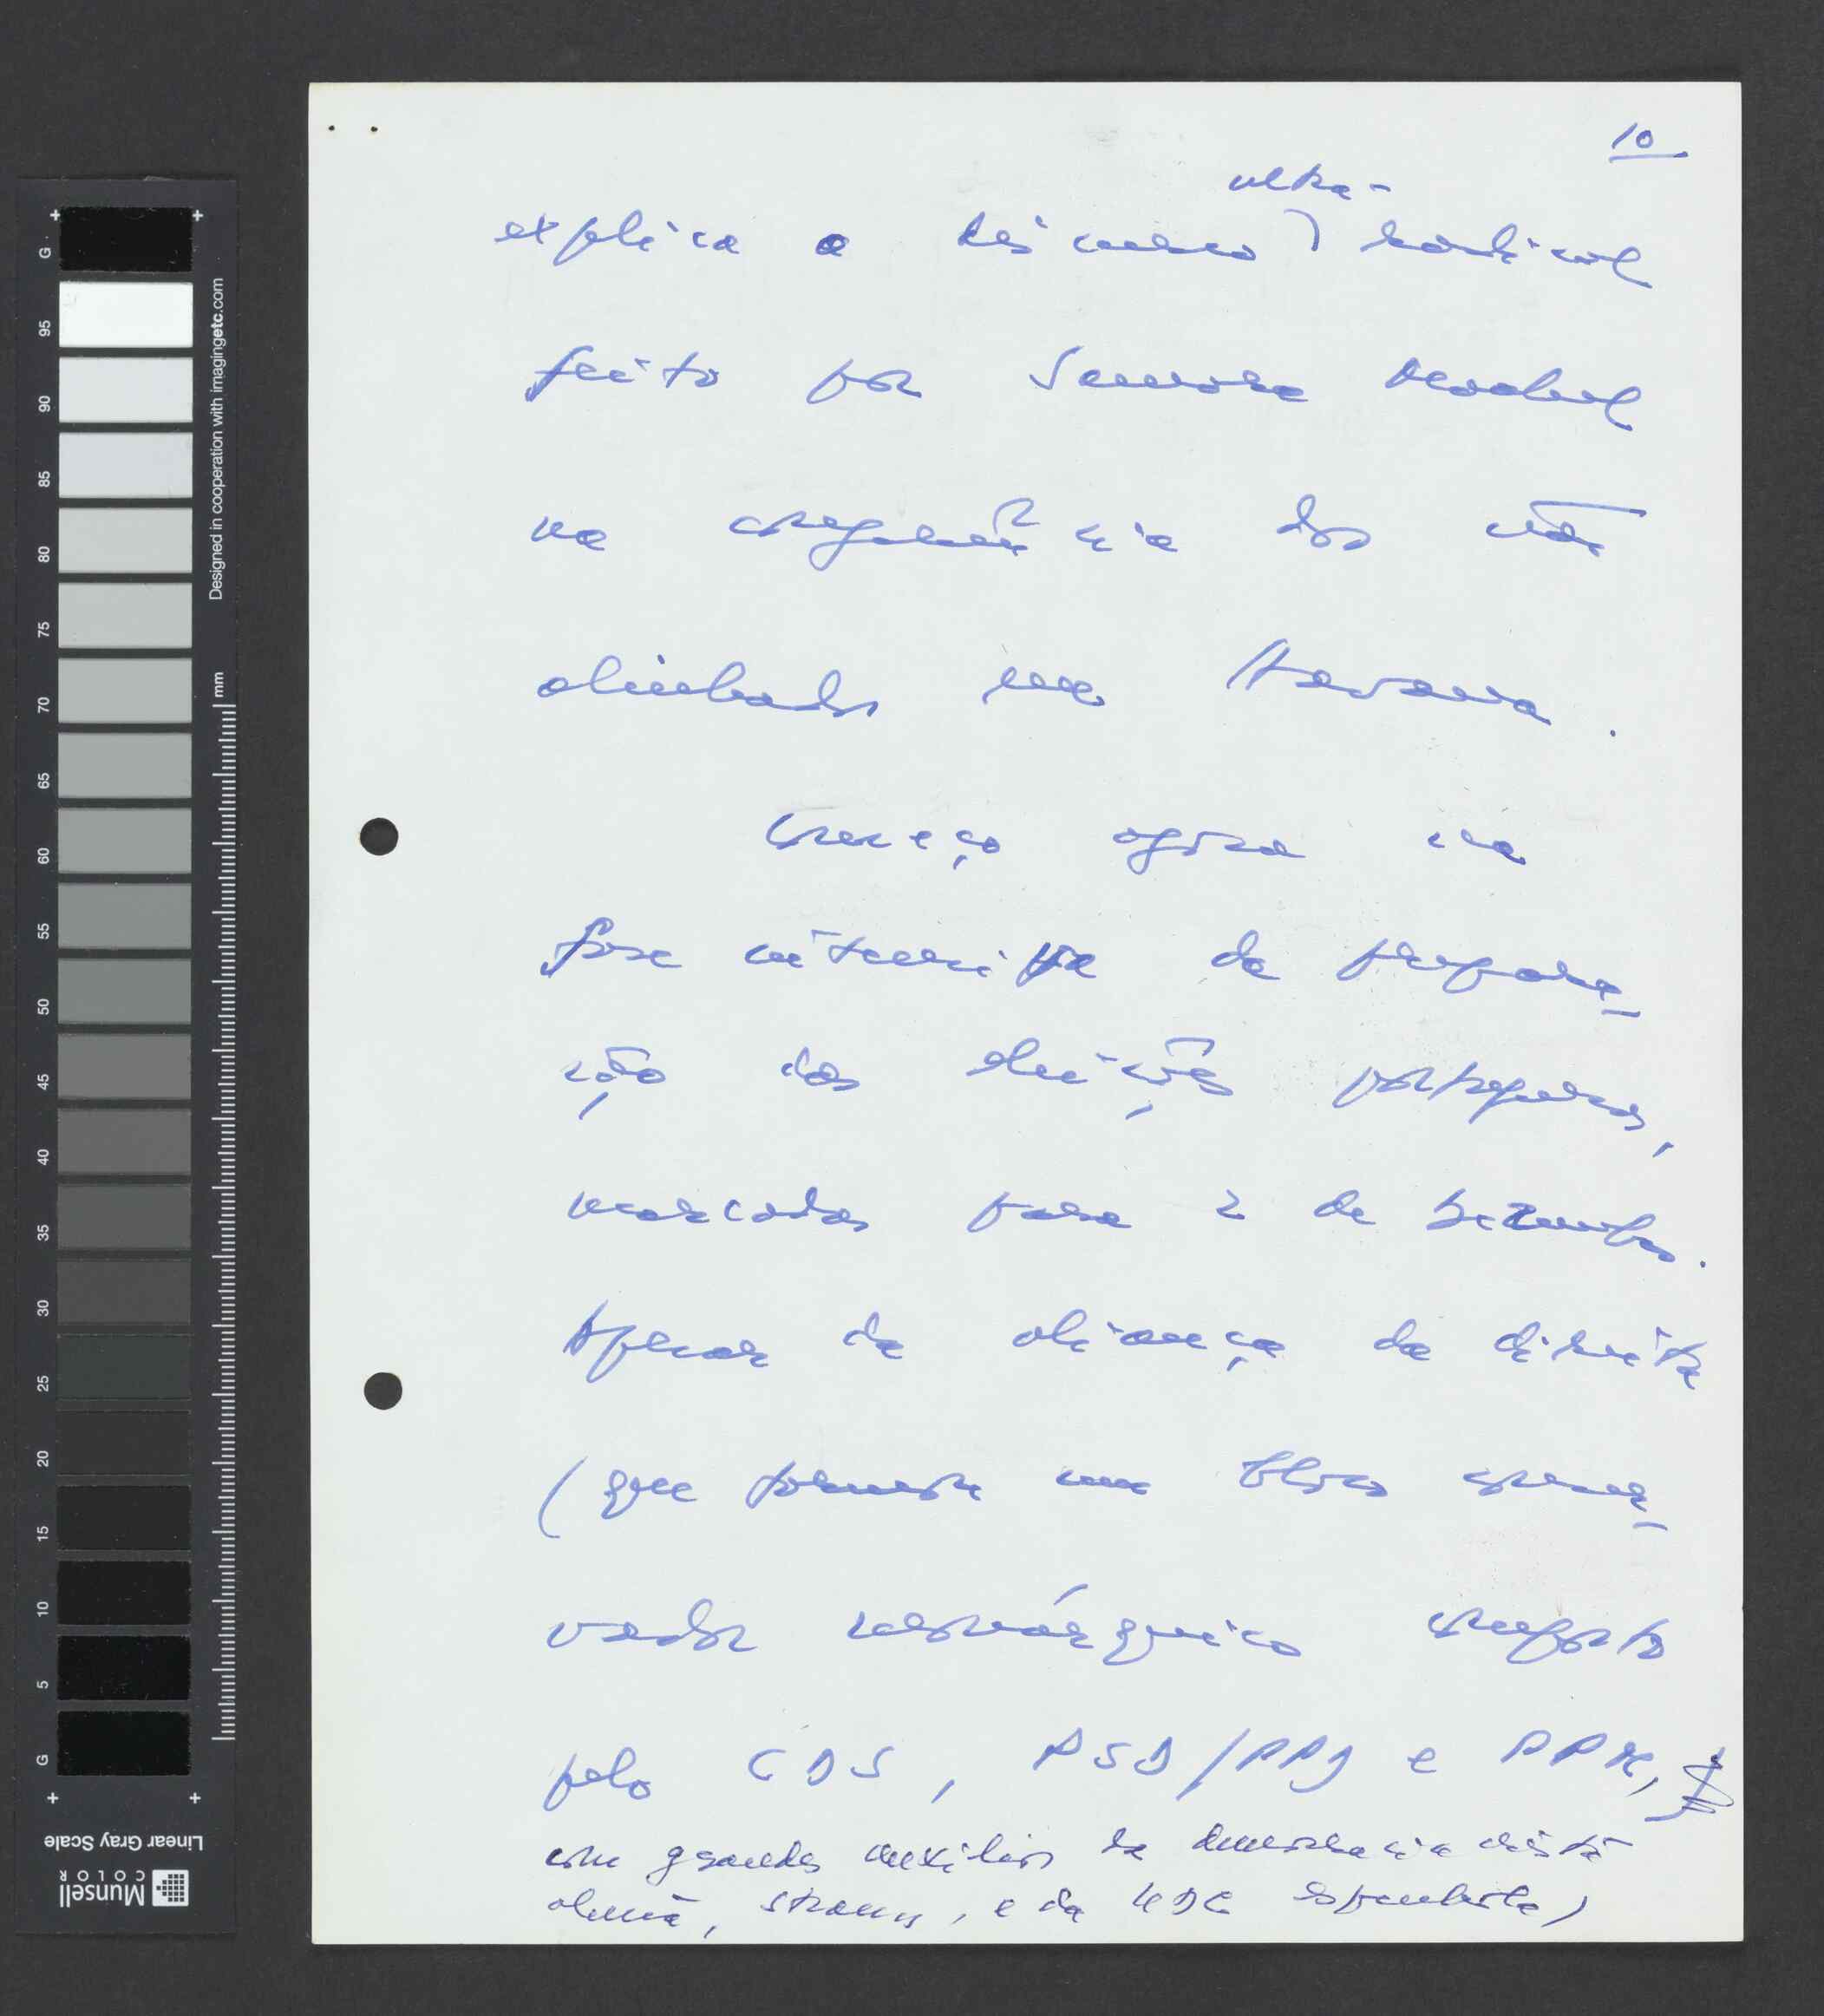 10
ultra-
explica o discurso radical
feito por Samora Machel
na conferência dos não
alinhados em Havana.
Começo agora na
fase intensiva da prepara-
ção das eleições portuguesas,
marcadas para 2 de Dezembro.
Apesar da aliança da direita
(que formou um bloco conser-
vador monárquico composto
pelo CDS, PSD/PPD e PPM,
com grandes auxílios da democracia cristã
alemã, Strauss, e da UDC espanhola)
G 95 90 85 80 75 70 65 60 55 50 45 40 35 30 25 20 15 10 5 G
Designed in cooperation with imagingetc.com
mm
Linear Gray Scale
Munsell
COLOR